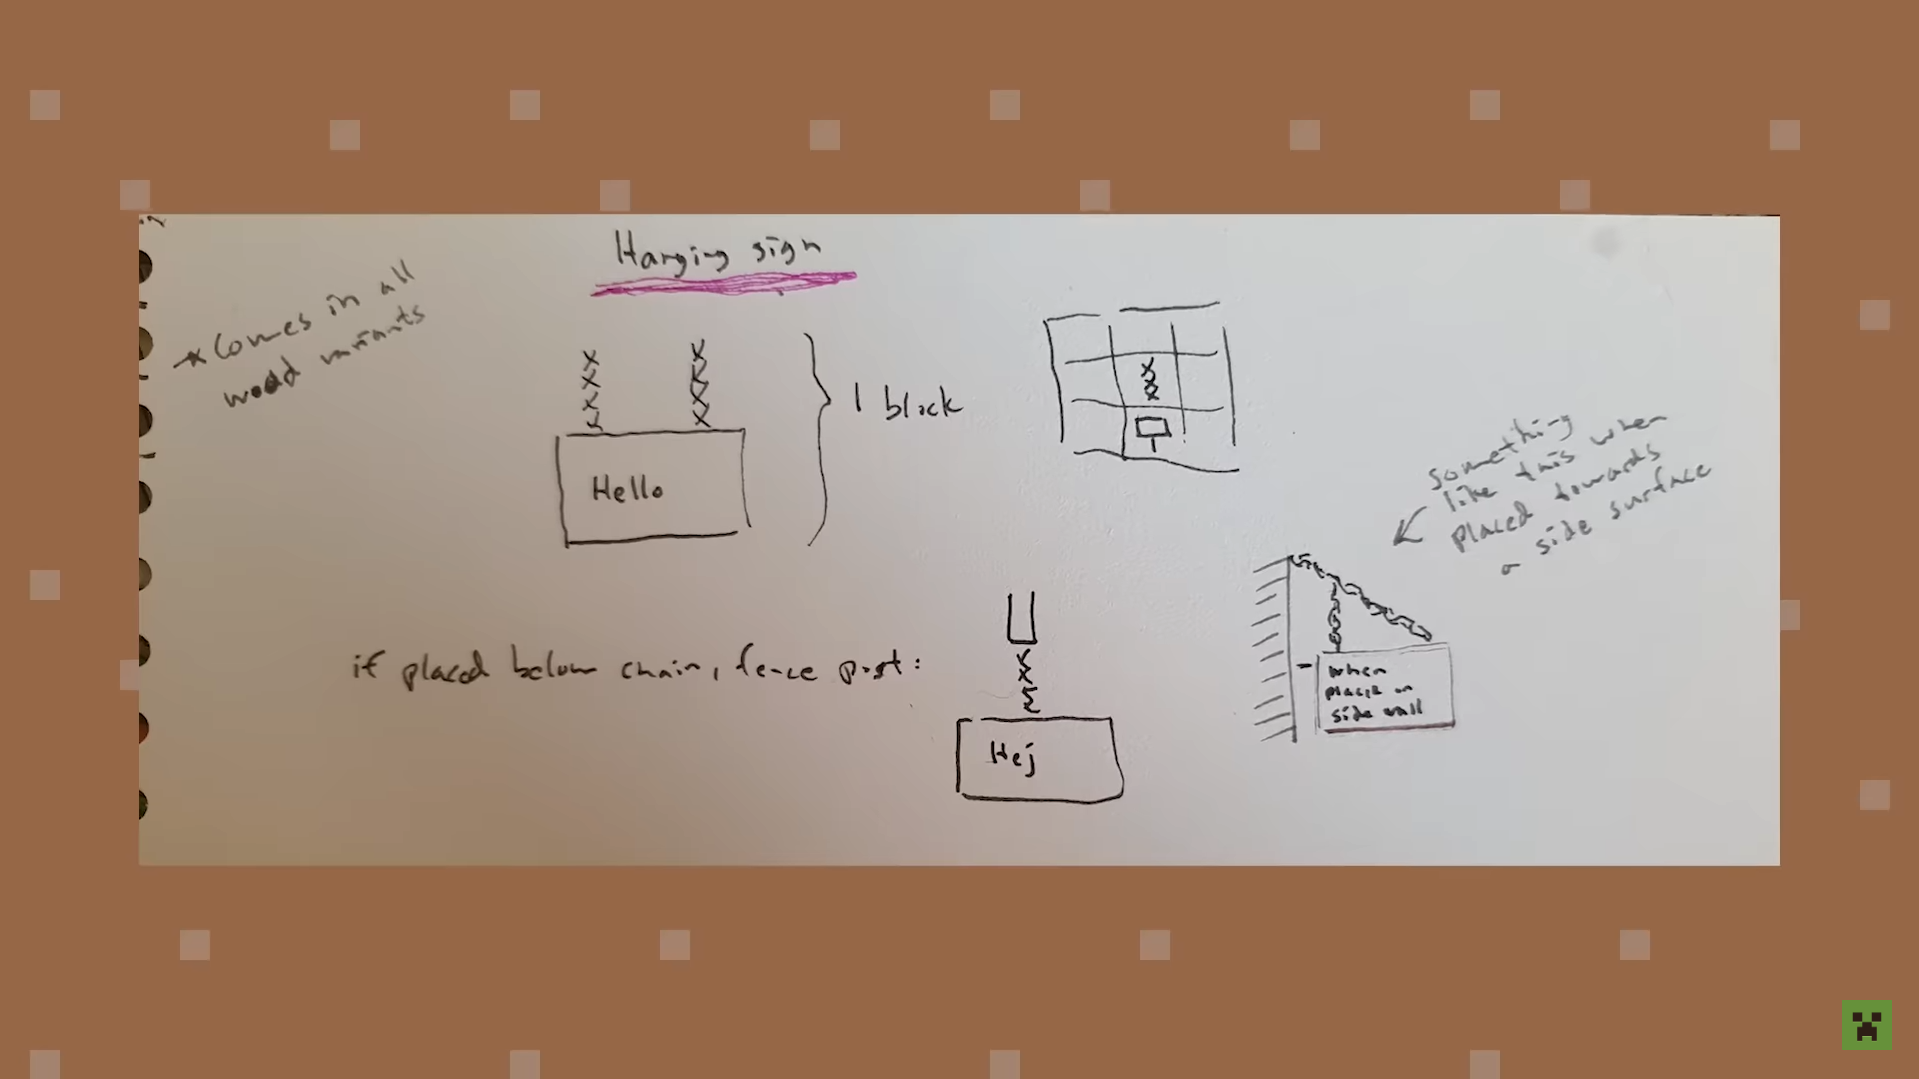 Hanging sign
* Comes in all
wood variants
Hello
1 block
something
like this when
placed towards
a side surface
if placed below chain, fence post:
Hej
when
place on
side wall